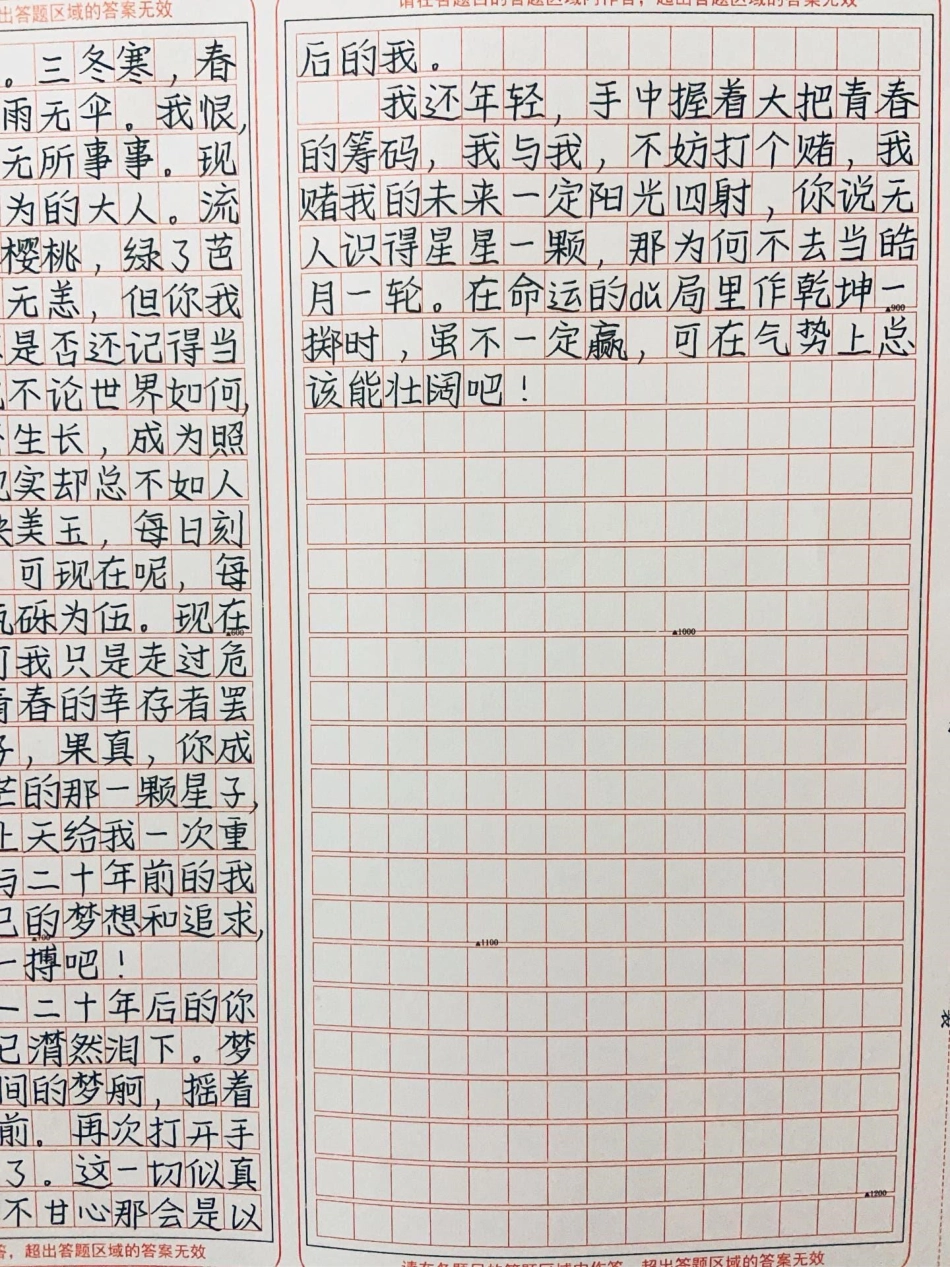 出答题区域的答案无效
。三冬寒，春
雨无伞。我恨，
无所事事。现
为的大人。流
樱桃，绿了芭
无恙，但你我
是否还记得当
不论世界如何，
生长，成为照
现实却总不如人
块美玉，每日刻
可现在呢，每
瓦砾为伍。现在
▲600
可我只是走过危
青春的幸存者罢
子，果真，你成
芒的那一颗星子，
上天给我一次重
与二十年前的我
己的梦想和追求，
▲700
一搏吧！
一二十年后的你
已潸然泪下。梦
间的梦舸，摇着
前。再次打开手
了。这一切似真
不甘心那会是以
答，超出答题区域的答案无效
请在各题目的答题区域内作答，超出答题区域的答案无效
后的我。
我还年轻，手中握着大把青春
的筹码，我与我，不妨打个赌，我
赌我的未来一定阳光四射，你说无
人识得星星一颗，那为何不去当皓
月一轮。在命运的dǔ局里作乾坤一
▲900
掷时，虽不一定赢，可在气势上总
该能壮阔吧！
▲1000
▲1100
▲1200
请在各题目的答题区域内作答，超出答题区域的答案无效